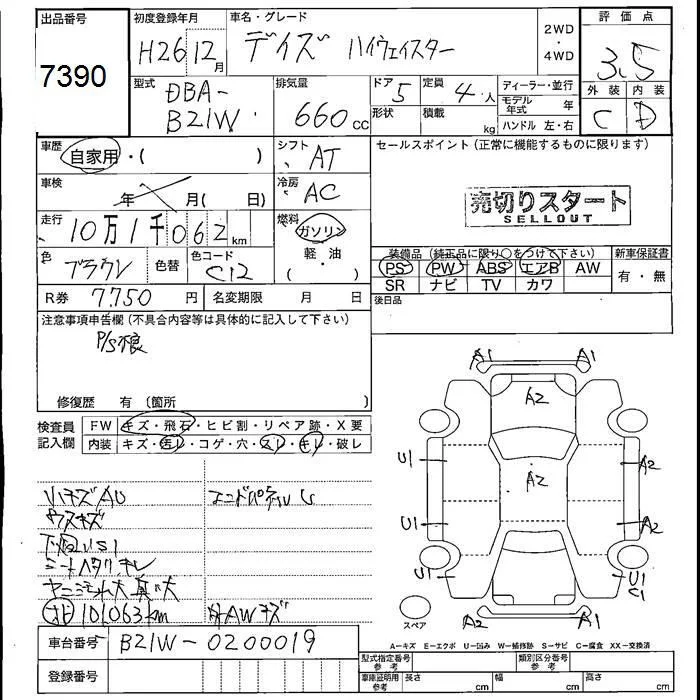 出品番号
7390
初度登録年月
H26 12月
車名・グレード
デイズ ハイウェイスター
2WD
・
4WD
評価点
3.5
外装 内装
C D
型式
DBA-
B21W
排気量
660cc
ドア 5
形状
定員 4人
積載 kg
ディーラー・並行
モデル年式 年
ハンドル 左・右
車歴
自家用・( )
シフト
AT
セールスポイント(正常に機能するものに限ります)
売切りスタート
SELLOUT
車検
年 月( 日)
冷房
AC
走行
10万1千062km
燃料
ガソリン
軽・油
・( )
色
ブラウン
色替
色コード
C12
装備品(純正品に限り○をつけて下さい)
新車保証書
PS PW ABS エアB AW
SR ナビ TV カワ
有・無
R券 7750円
名変期限 月 日
後日品
注意事項申告欄(不具合内容等は具体的に記入して下さい)
修復歴 有(箇所 )
検査員
記入欄
FW キズ・飛石・ヒビ割・リペア跡・X要
内装 キズ・汚レ・コゲ・穴・スレ・キレ・破レ
小キズAU
ウスキズ
シートヘタリ キレ
101,063km
AWキズ
A1 A1
A2
U1
A2
A2
U1
A2
U1
U1
C1
A2
A1
スペア
A-キズ E-エクボ U-凹み W-補修跡 S-サビ C-腐食 XX-交換済
車台番号
B21W-0200019
登録番号
型式指定番号
参考
類別区分番号
参考
車庫証明用
参考
長さ cm
幅 cm
高さ cm